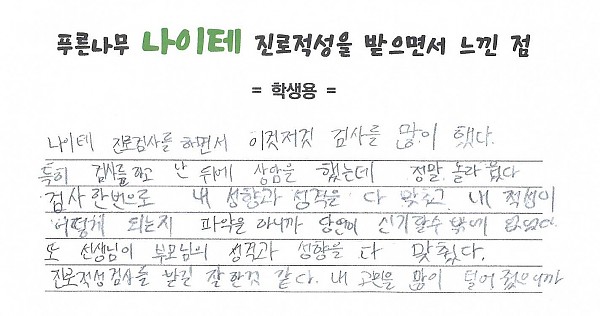 푸른나무 나이테 진로적성을 받으면서 느낀 점
= 학생용 =
나이테 진로검사를 하면서 이것저것 검사를 많이 했다.
특히 검사를 하고 난 뒤에 상담을 했는데 정말 놀라웠다
검사 한번으로 내 성향과 성격을 다 맞추고 내 적성이
어떻게 되는지 파악을 하니까 당연히 신기할수 밖에 없었다.
또 선생님이 부모님의 성격과 성향을 다 맞췄다.
진로적성검사를 받길 잘 한것 같다. 내 고민을 많이 털어 줬으니까